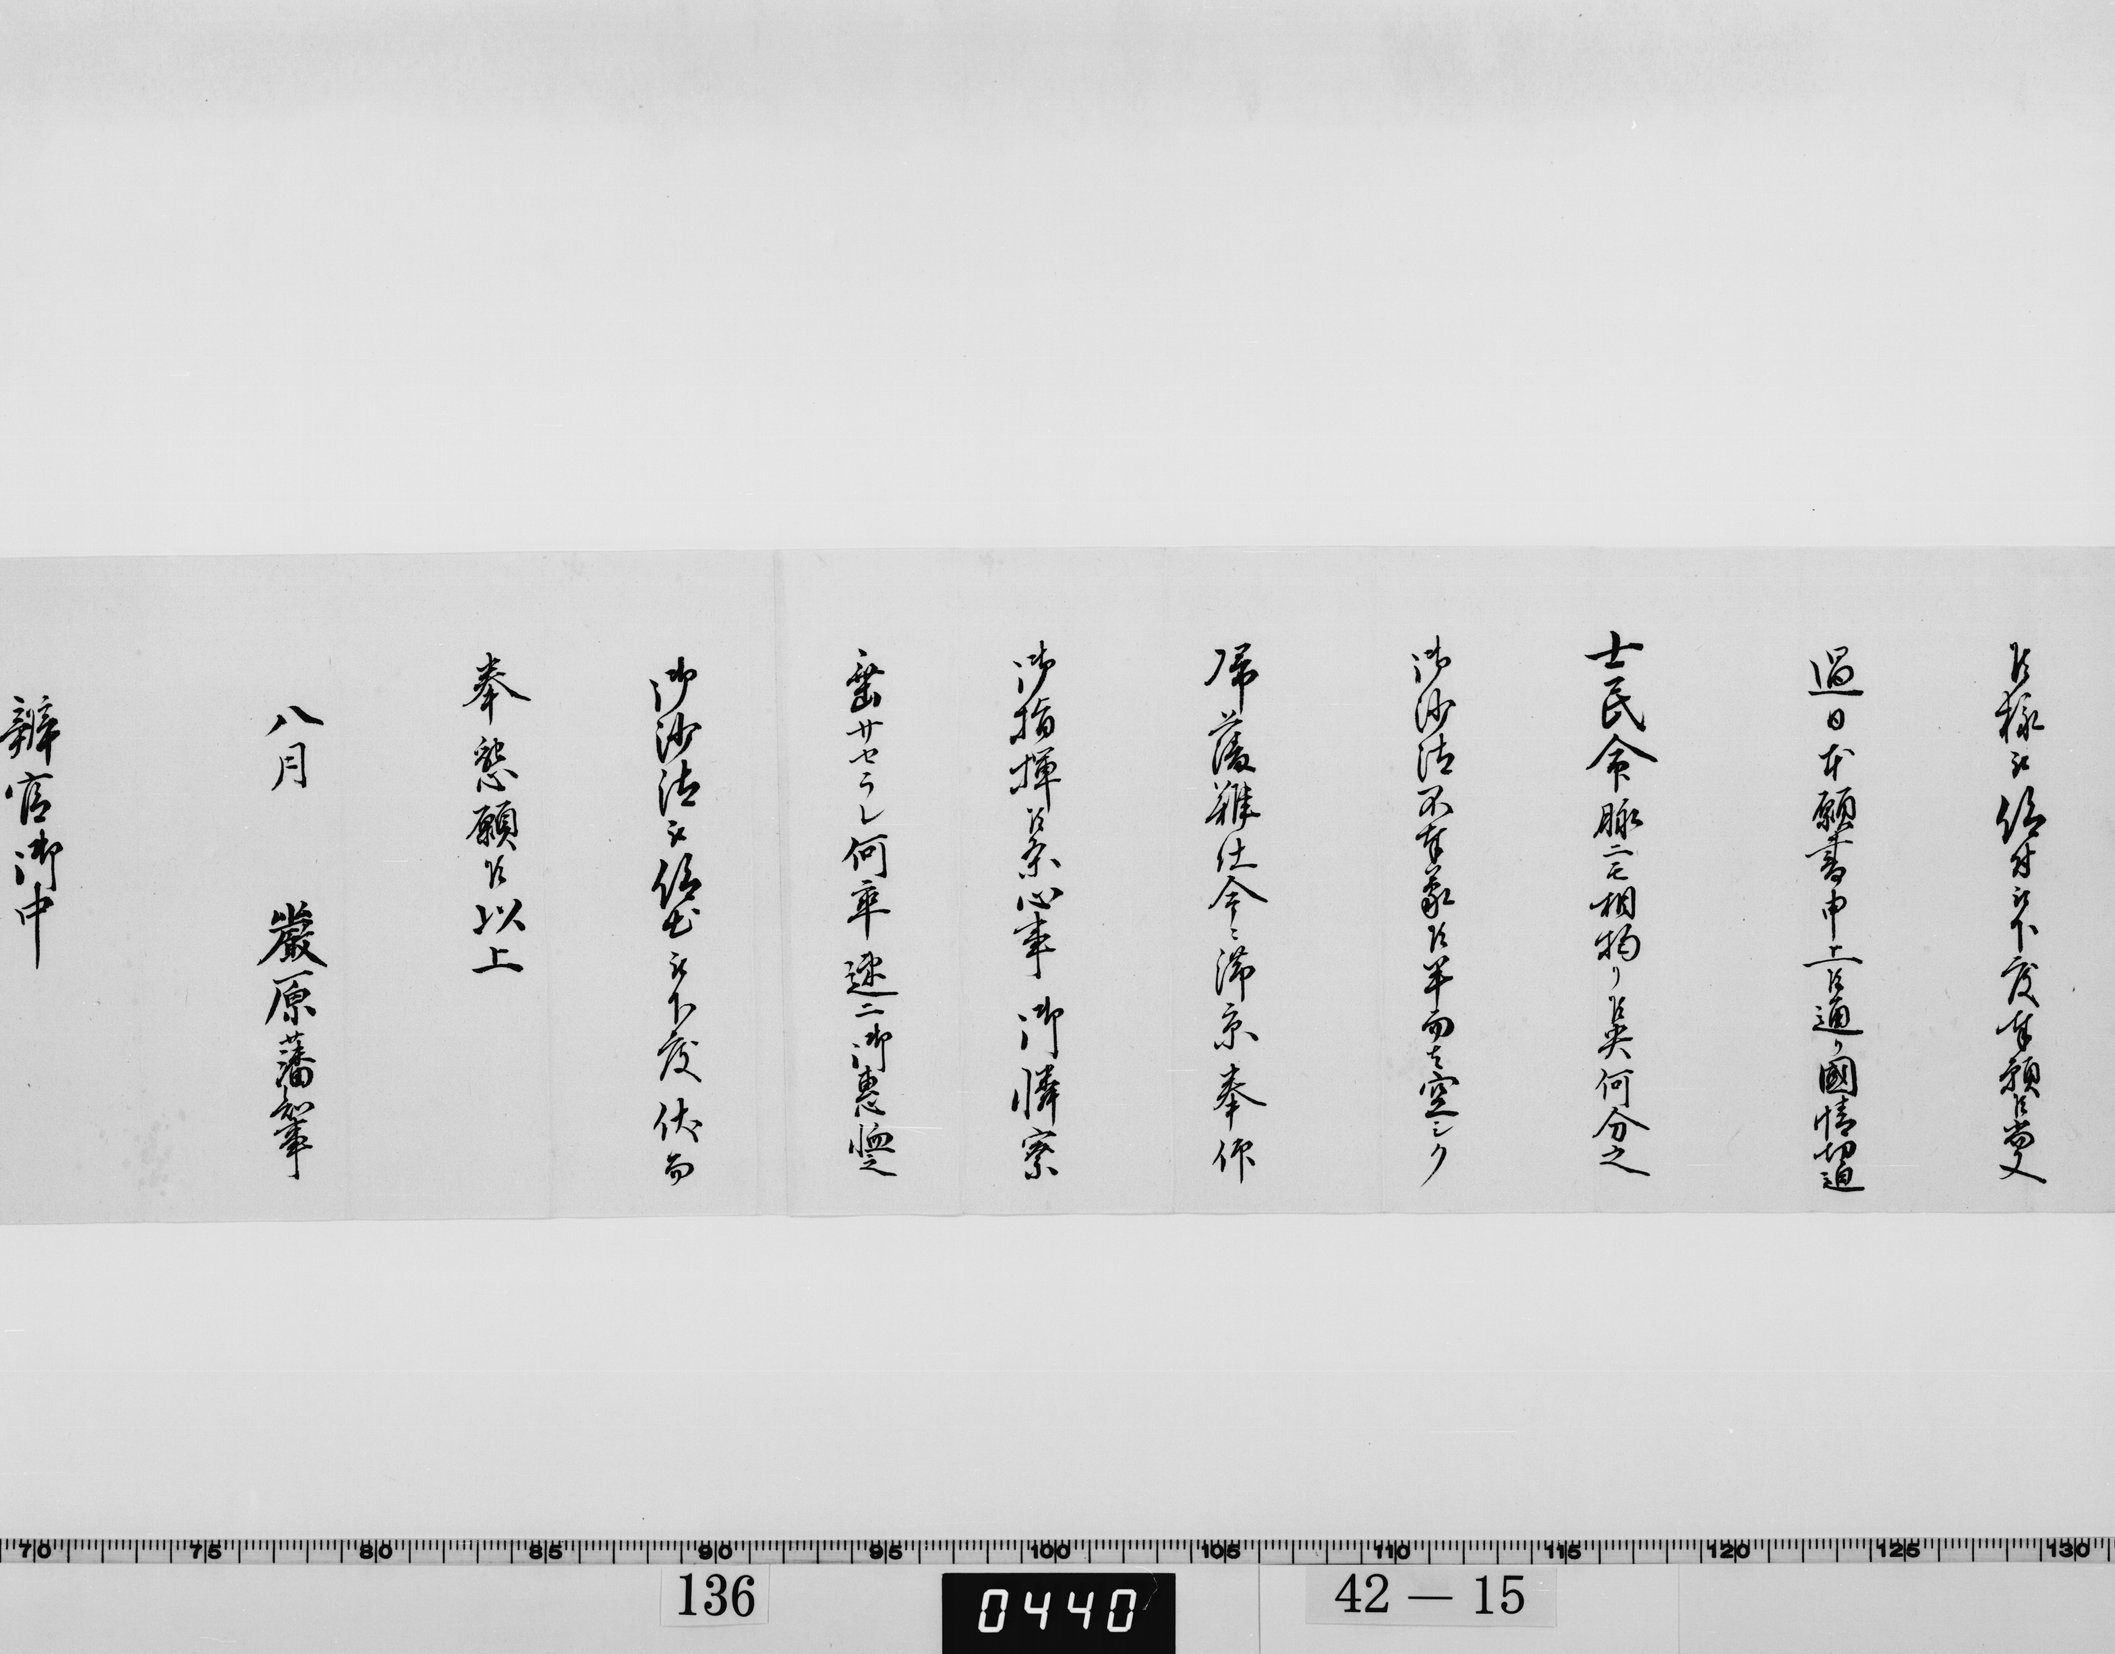 候様被 仰付被下度奉願候尚又
過日本願書申上候通り國情切迫
士民命脉ニモ相拘り候莫何分之
御沙汰不奉蒙候半而者空シク
帰藩難仕今ニ滞京奉仰
御指揮候条心事 御憐察
垂サセラレ何卒速ニ御恵恤之
御沙汰被 仰出被下度伏而
奉懇願候以上
八月 嚴原藩知事
辨官御中
70 75 80 85 90 95 100 105 110 115 120 125 130
136 0440 42－15